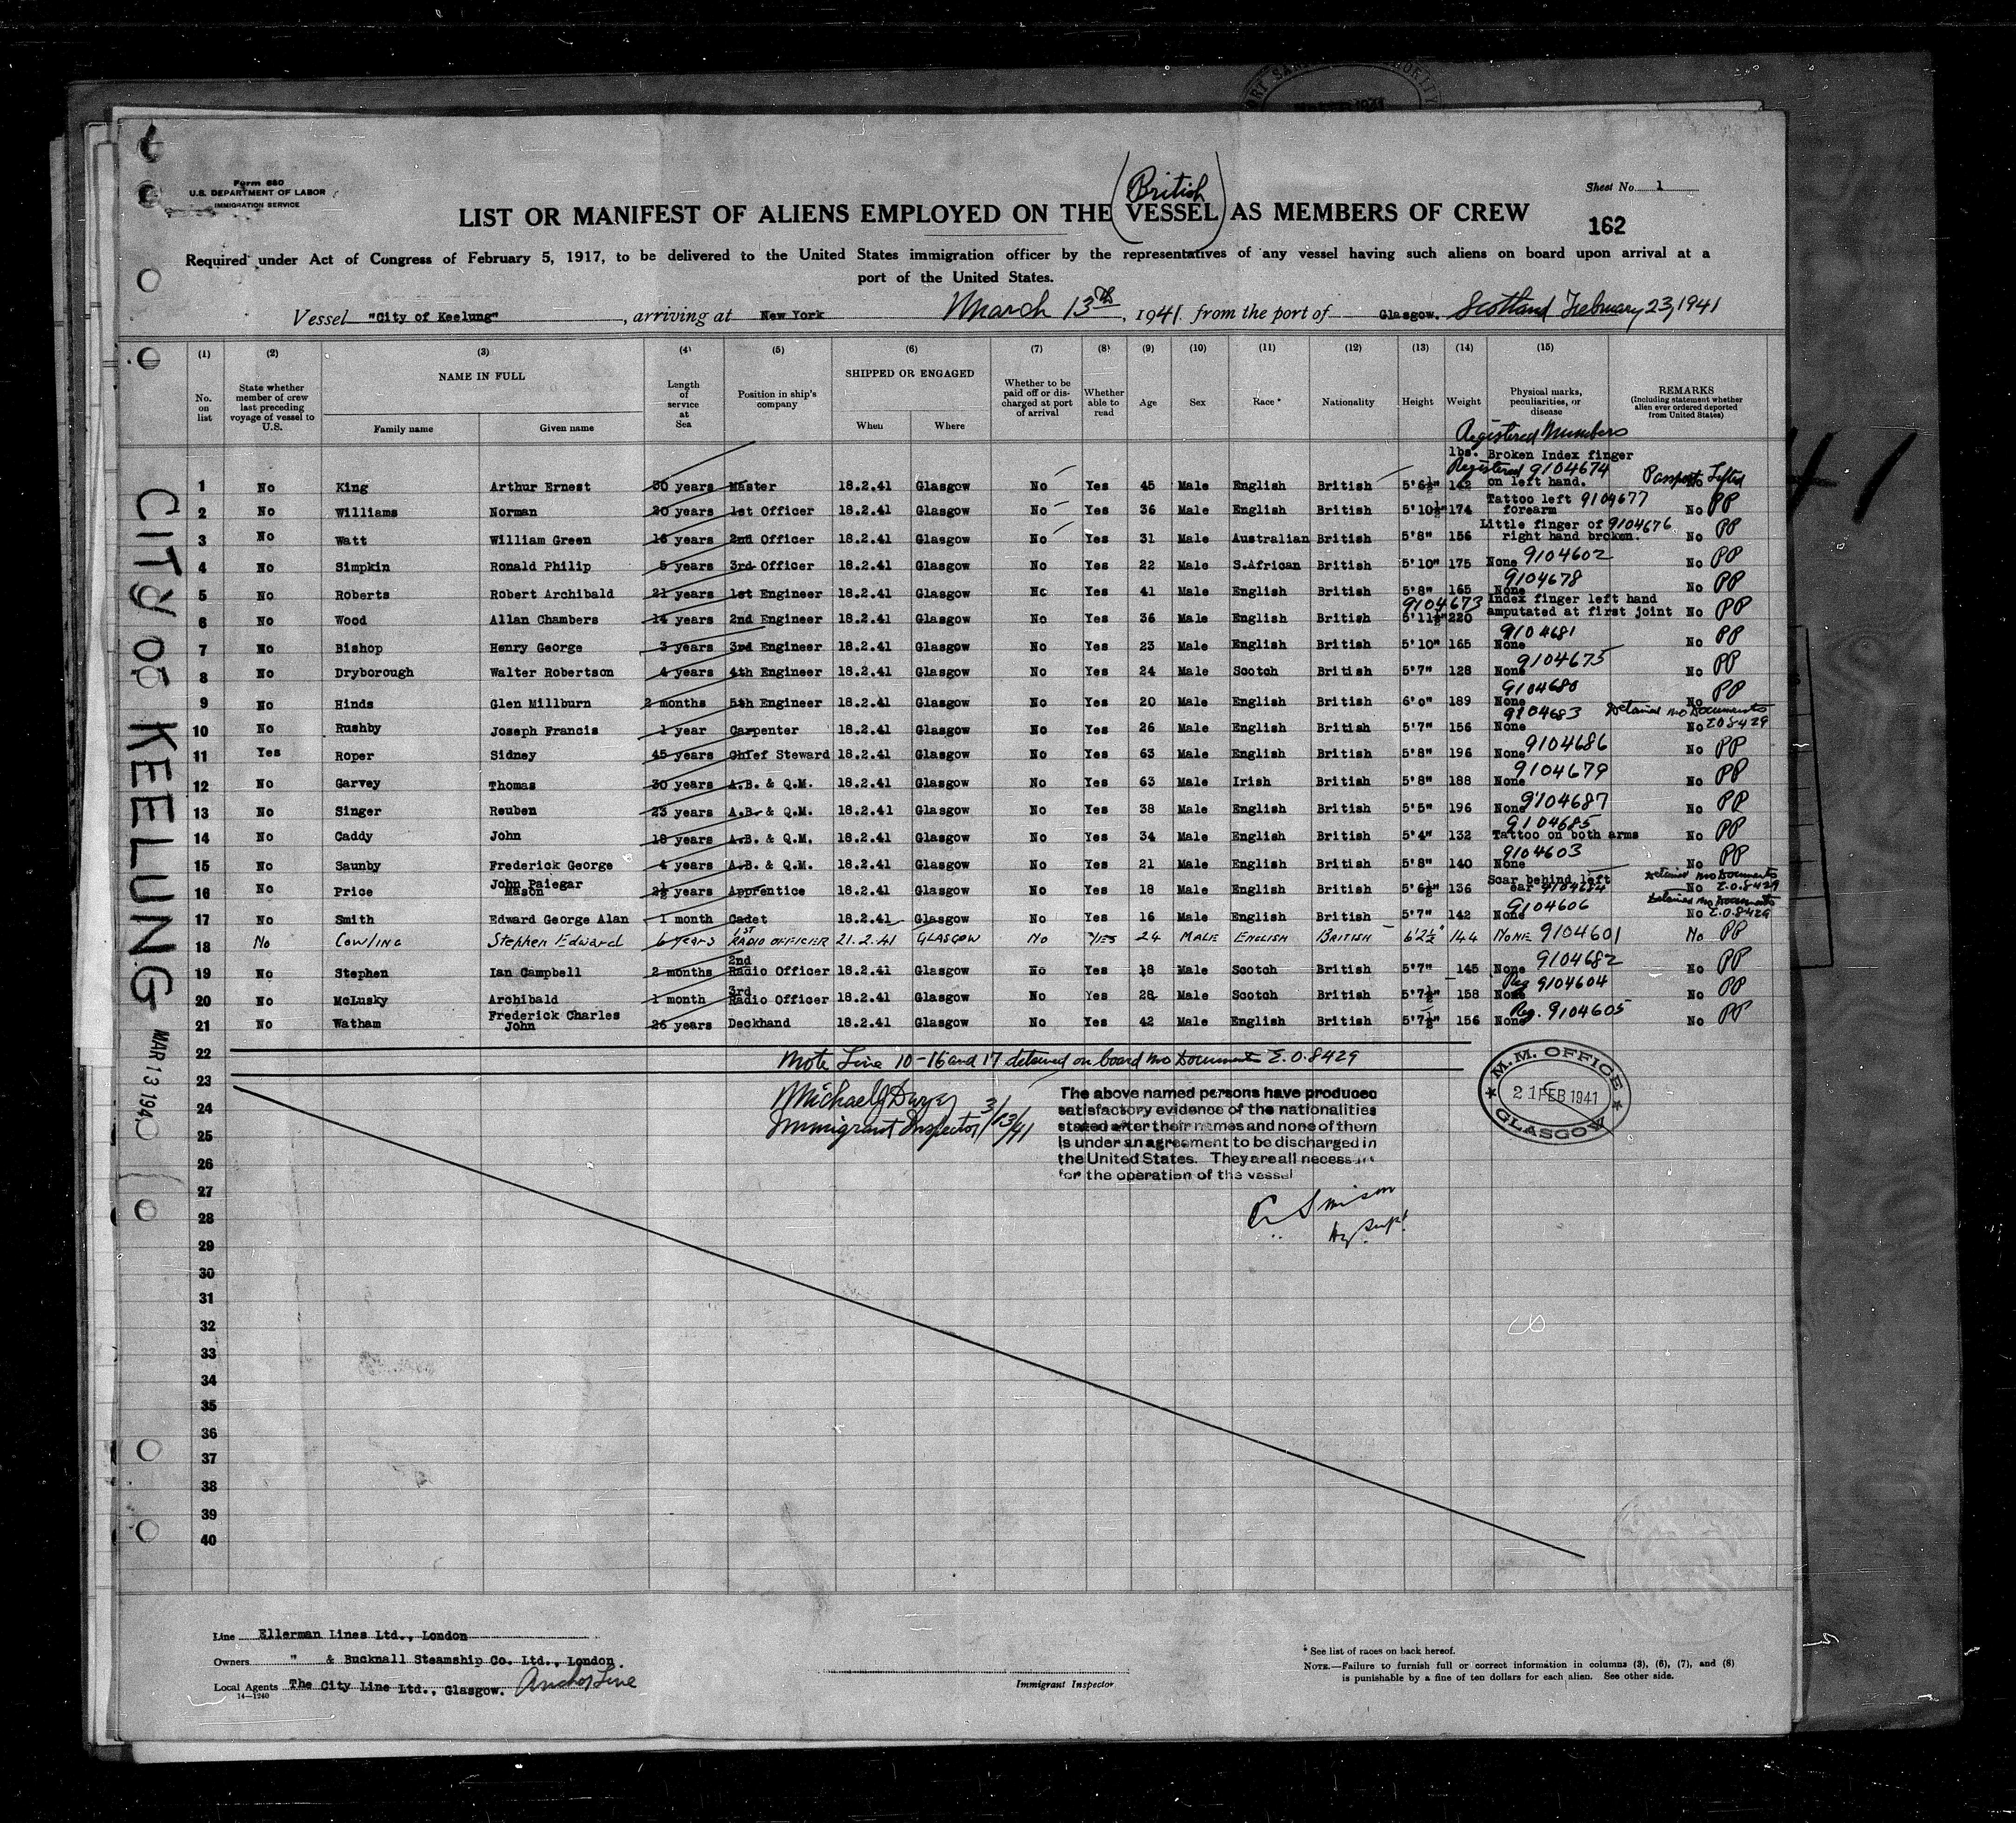 Form 680
U.S. DEPARTMENT OF LABOR
IMMIGRATION SERVICE
Sheet No. 1
British
LIST OR MANIFEST OF ALIENS EMPLOYED ON THE VESSEL AS MEMBERS OF CREW
162
Required under Act of Congress of February 5, 1917, to be delivered to the United States immigration officer by the representatives of any vessel having such aliens on board upon arrival at a
port of the United States.
Vessel "City of Keelung", arriving at New York March 13th, 1941 from the port of Glasgow. Scotland February 23, 1941
(1) (2) (3) (4) (5) (6) (7) (8) (9) (10) (11) (12) (13) (14) (15)
No. on list
State whether member of crew last preceding voyage of vessel to U.S.
NAME IN FULL
Family name Given name
Length of service at Sea
Position in ship's company
SHIPPED OR ENGAGED
When Where
Whether to be paid off or discharged at port of arrival
Whether able to read
Age Sex Race* Nationality Height Weight
Physical marks, peculiarities, or disease
REMARKS
(Including statement whether alien ever ordered deported from United States)
Registered Numbers
lbs. Broken Index finger
Registered 9104674
1 No King Arthur Ernest 30 years Master 18.2.41 Glasgow No Yes 45 Male English British 5'6½" 142 on left hand. No Passport Lifted
Tattoo left 9104677
2 No Williams Norman 20 years 1st Officer 18.2.41 Glasgow No Yes 36 Male English British 5'10½" 174 forearm No PP
Little finger of 9104676
3 No Watt William Green 16 years 2nd Officer 18.2.41 Glasgow No Yes 31 Male Australian British 5'8" 156 right hand broken. No PP
4 No Simpkin Ronald Philip 5 years 3rd Officer 18.2.41 Glasgow No Yes 22 Male S.African British 5'10" 175 None 9104602 No PP
9104678
5 No Roberts Robert Archibald 21 years 1st Engineer 18.2.41 Glasgow No Yes 41 Male English British 5'8" 165 None No PP
9104673 Index finger left hand
6 No Wood Allan Chambers 14 years 2nd Engineer 18.2.41 Glasgow No Yes 36 Male English British 5'11½" 220 amputated at first joint No PP
9104681
7 No Bishop Henry George 3 years 3rd Engineer 18.2.41 Glasgow No Yes 23 Male English British 5'10" 165 None No PP
8 No Dryborough Walter Robertson 4 years 4th Engineer 18.2.41 Glasgow No Yes 24 Male Scotch British 5'7" 128 None 9104675 No PP
9104680
9 No Hinds Glen Millburn 2 months 5th Engineer 18.2.41 Glasgow No Yes 20 Male English British 6'0" 189 None No PP
9104683 Detained no Documents
10 No Rushby Joseph Francis 1 year Carpenter 18.2.41 Glasgow No Yes 26 Male English British 5'7" 156 None No E.O.8429
11 Yes Roper Sidney 45 years Chief Steward 18.2.41 Glasgow No Yes 63 Male English British 5'8" 196 None 9104686 No PP
12 No Garvey Thomas 30 years A.B. & Q.M. 18.2.41 Glasgow No Yes 63 Male Irish British 5'8" 188 None 9104679 No PP
13 No Singer Reuben 23 years A.B. & Q.M. 18.2.41 Glasgow No Yes 38 Male English British 5'5" 196 None 9104687 No PP
9104685
14 No Caddy John 18 years A.B. & Q.M. 18.2.41 Glasgow No Yes 34 Male English British 5'4" 132 Tattoo on both arms No PP
9104603
15 No Saunby Frederick George 4 years A.B. & Q.M. 18.2.41 Glasgow No Yes 21 Male English British 5'8" 140 None No PP
John Paiegar Scar behind left Detained no Documents
16 No Price Mason 2½ years Apprentice 18.2.41 Glasgow No Yes 18 Male English British 5'6½" 136 ear 9104684 No E.O.8429
9104606 Detained no Documents
17 No Smith Edward George Alan 1 month Cadet 18.2.41 Glasgow No Yes 16 Male English British 5'7" 142 None No E.O.8429
1ST
18 No Cowling Stephen Edward 6 years RADIO OFFICER 21.2.41 GLASGOW No YES 24 MALE ENGLISH BRITISH 6'2½" 144 NONE 9104601 No PP
2nd 9104682
19 No Stephen Ian Campbell 2 months Radio Officer 18.2.41 Glasgow No Yes 18 Male Scotch British 5'7" 145 None No PP
3rd Reg 9104604
20 No McLusky Archibald 1 month Radio Officer 18.2.41 Glasgow No Yes 28 Male Scotch British 5'7½" 158 None No PP
Frederick Charles Reg. 9104605
21 No Watham John 26 years Deckhand 18.2.41 Glasgow No Yes 42 Male English British 5'7½" 156 None No PP
22 Note Line 10-16 and 17 detained on board no Documents E.O.8429
23
24
25
26
27
28
29
30
31
32
33
34
35
36
37
38
39
40
Michael J Dwyer
Immigrant Inspector 3/13/41
The above named persons have produced
satisfactory evidence of the nationalities
stated after their names and none of them
is under an agreement to be discharged in
the United States. They are all necessary
for the operation of the vessel
M.M. OFFICE
21 FEB 1941
GLASGOW
CITY OF KEELUNG
MAR 13 194
41
Line Ellerman Lines Ltd., London
Owners " & Bucknall Steamship Co. Ltd., London.
Local Agents The City Line Ltd., Glasgow. Anchor Line
14-1240
Immigrant Inspector
* See list of races on back hereof.
NOTE.—Failure to furnish full or correct information in columns (3), (6), (7), and (8)
is punishable by a fine of ten dollars for each alien. See other side.